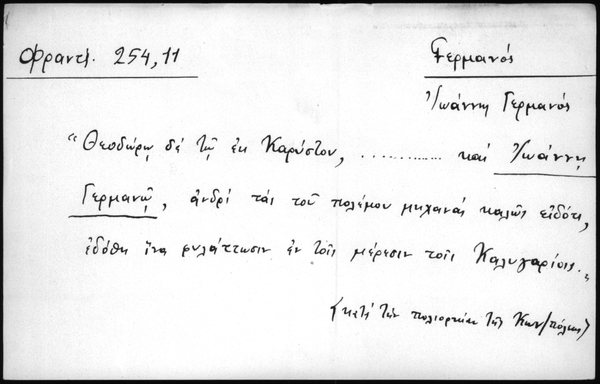 Φραντζ. 254,11
Γερμανός
Ἰωάννης Γερμανός
"Θεοδώρῳ δέ τῷ ἐκ Καρύστου, ............. καί Ἰωάννῃ
Γερμανῷ, ἀνδρί τάς τοῦ πολέμου μηχανάς καλῶς εἰδότι,
ἐδόθη ἵνα φυλάττωσιν ἐν τοῖς μέρεσιν τοῖς Καλιγαρίοις."
τήν πολιορκίαν τῆς Κων/πόλεως)